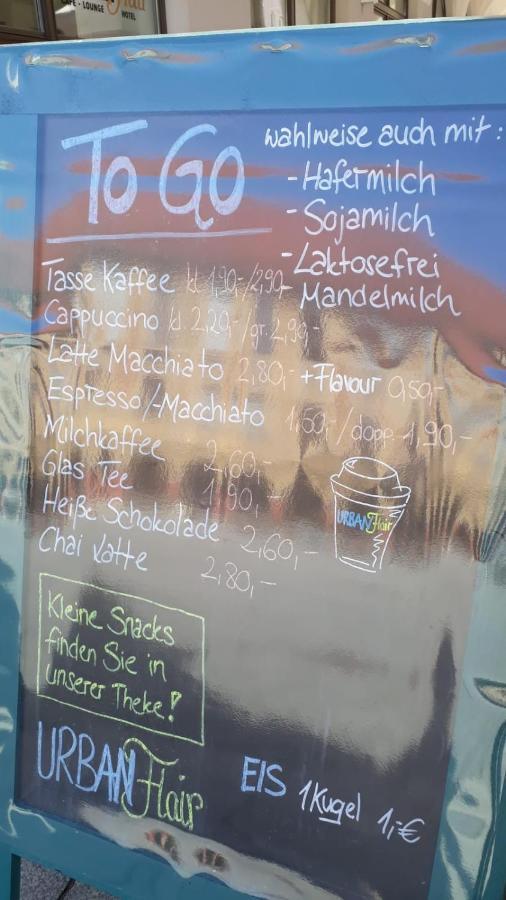 CAFE · LOUNGE Flair HOTEL
TO GO
wahlweise auch mit:
- Hafermilch
- Sojamilch
- Laktosefrei
- Mandelmilch
Tasse Kaffee kl. 1,90,-/2,90,-
Cappuccino kl. 2,20,-/gr. 2,90,-
Latte Macchiato 2,80,- + Flavour 0,50,-
Espresso/-Macchiato 1,50,-/dopp. 1,90,-
Milchkaffee 2,60,-
Glas Tee 1,80,-
Heiße Schokolade 2,60,-
Chai Latte 2,80,-
URBAN Flair
Kleine Snacks
finden Sie in
unserer Theke!
URBAN Flair
EIS 1 Kugel 1,-€